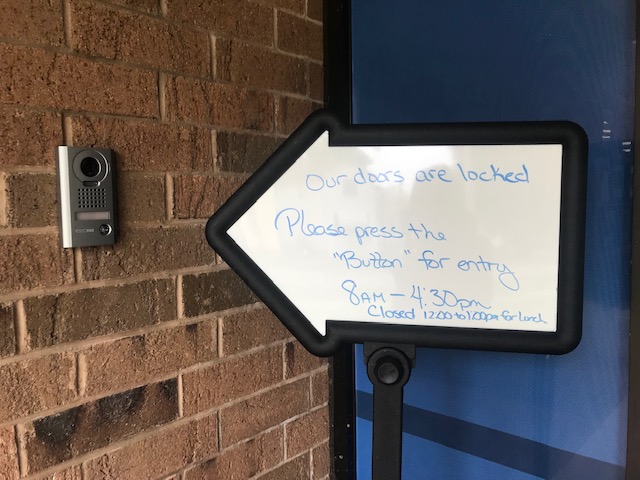 Our doors are locked
Please press the
"Button" for entry
8AM - 4:30pm
Closed 12:00 to 1:00pm for lunch